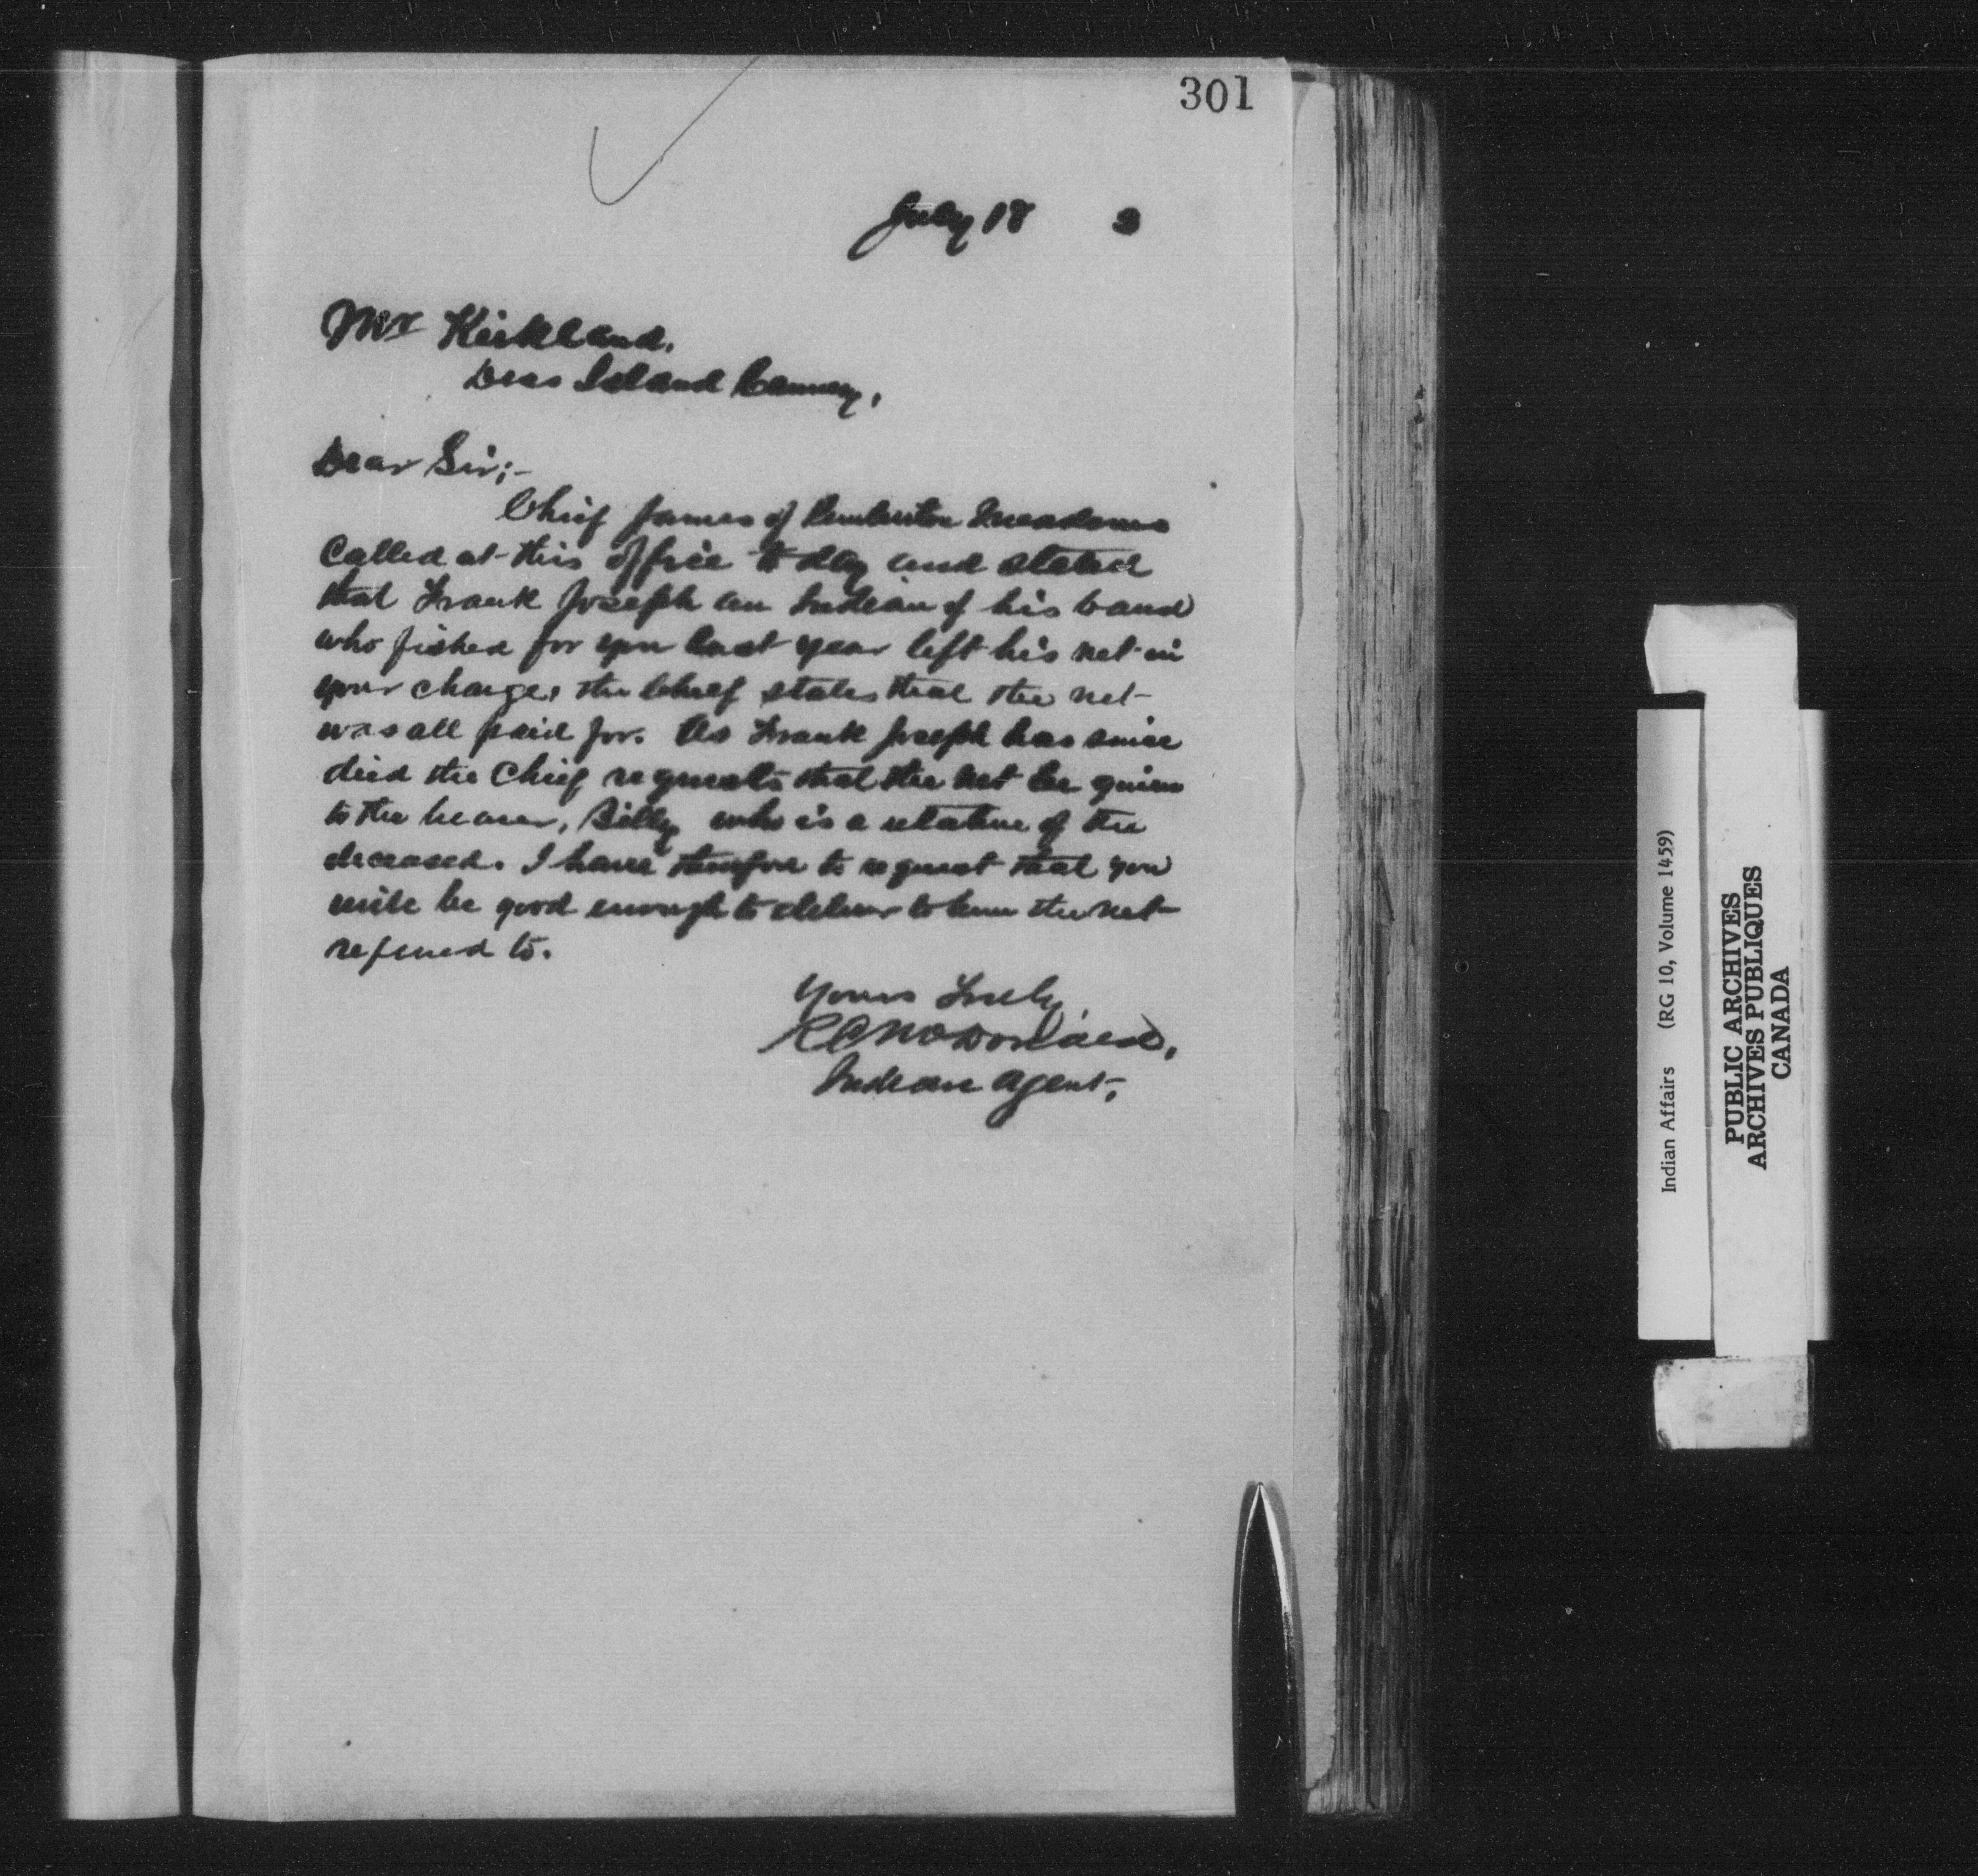 301
July 18 3
Mr Kirkland,
Deas Island Cannery,
Dear Sir;-
Chief James of Pemberton Meadows
Called at this office to day and stated
that Frank Joseph an Indian of his band
who fished for you last year left his net in
your charge, the Chief states that the net
was all paid for. As Frank Joseph has since
died the Chief requests that the net be given
to the bearer, Billy who is a relative of the
deceased. I have therefore to request that you
will be good enough to deliver to him the net
referred to.
Yours Truly
R C McDonald,
Indian Agent,
Indian Affairs (RG 10, Volume 1459)
PUBLIC ARCHIVES
ARCHIVES PUBLIQUES
CANADA